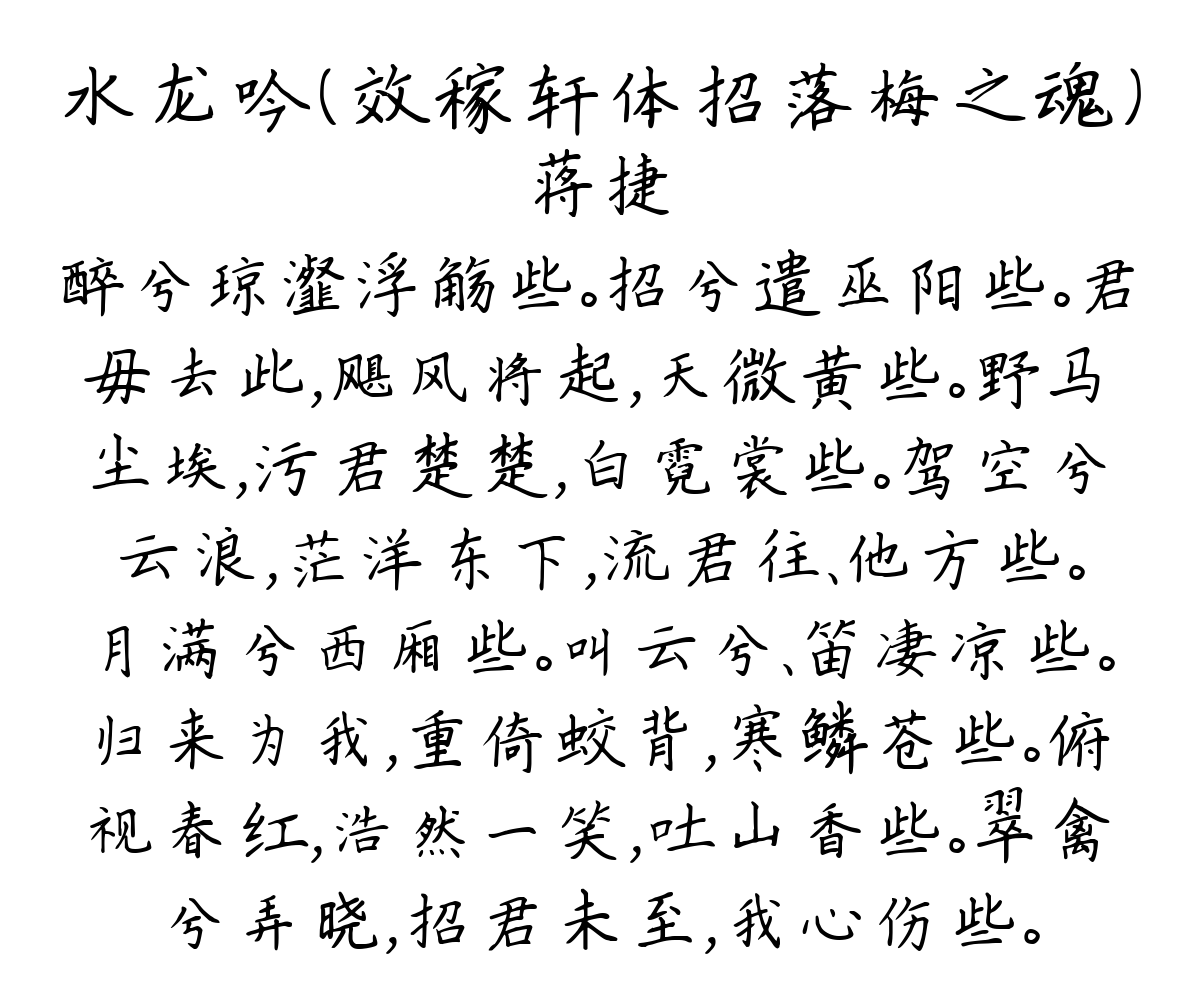 水龙吟(效稼轩体招落梅之魂)
蒋捷
醉兮琼瀣浮觞些。招兮遣巫阳些。君
毋去此,飓风将起,天微黄些。野马
尘埃,污君楚楚,白霓裳些。驾空兮
云浪,茫洋东下,流君往、他方些。
月满兮西厢些。叫云兮、笛凄凉些。
归来为我,重倚蛟背,寒鳞苍些。俯
视春红,浩然一笑,吐山香些。翠禽
兮弄晓,招君未至,我心伤些。